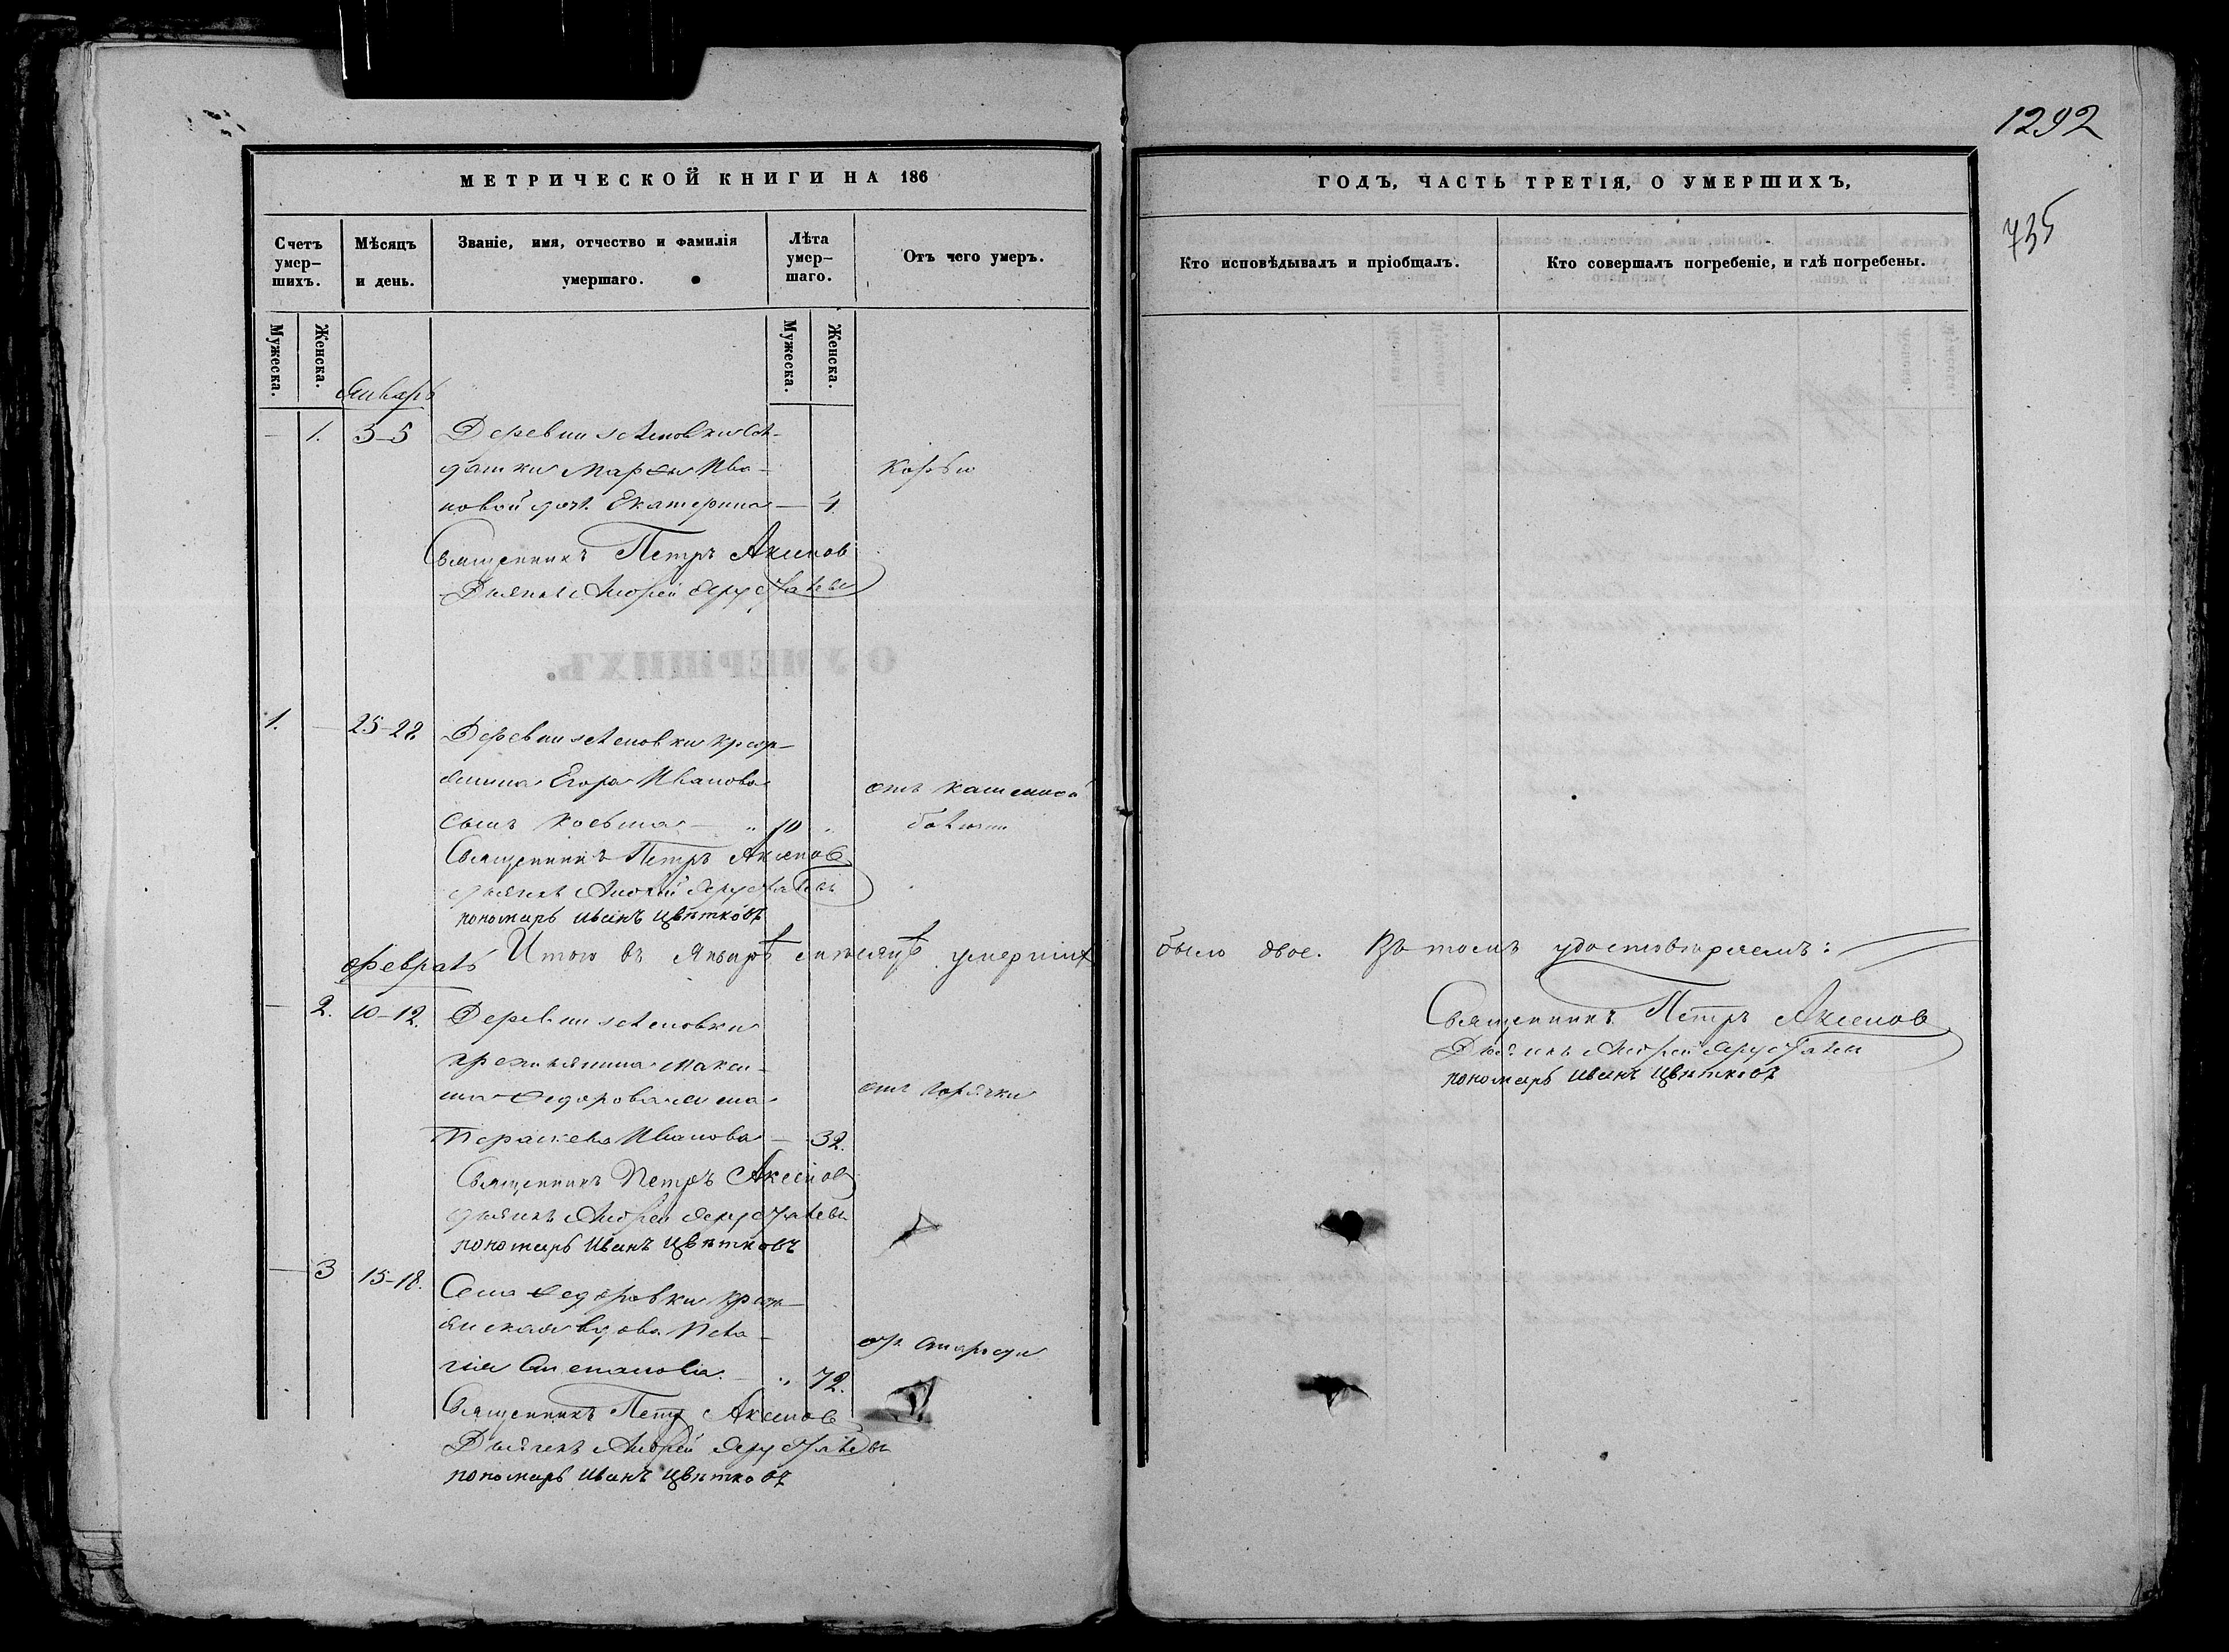 1292
735
МЕТРИЧЕСКОЙ КНИГИ НА 186
ГОДЪ, ЧАСТЬ ТРЕТІЯ, О УМЕРШИХЪ,
Счетъ умер-
шихъ.
Мѣсяцъ
и день.
Званіе, имя, отчество и фамилія
умершаго.
Лѣта
умер-
шаго.
Отъ чего умеръ.
Кто исповѣдывалъ и пріобщалъ.
Кто совершалъ погребеніе, и гдѣ погребены.
Мужеска.
Женска.
Мужеска.
Женска.
Январь
1. 3-5 Деревни
Марѳы Ива-
новой доч. Екатерина — 4.
Корью
Священникъ Петръ Аксенов
Дьячекъ Андрей
1. — 25-28. Деревни крест-
янина Егора Иванова
сынъ Косьма — 10
отъ
Священникъ Петръ Аксенов
дьячекъ Андрей
пономарь Иванъ Цвѣтковъ
Итого въ Январѣ мѣсяцѣ умершихъ было двое. Въ томъ удостовѣряемъ:
Священникъ Петръ Аксенов
Дьячекъ Андрей
пономарь Иванъ Цвѣтковъ
февраль
— 2. 10-12. Деревни
крестьянина Макси-
ма Ѳедорова жена
Параскева Иванова — 32.
отъ горячки
Священникъ Петръ Аксенов
дьячекъ Андрей
пономарь Иванъ Цвѣтковъ
— 3 15-18. Села Ѳедоровки крест-
янская вдова Пела-
гія Степанова — 72.
отъ старости
Священникъ Петръ Аксенов
Дьячекъ Андрей
пономарь Иванъ Цвѣтковъ